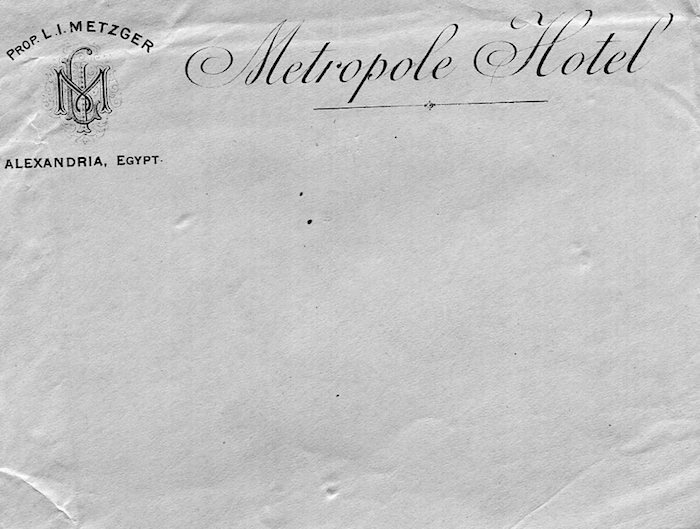 PROP. L.I. METZGER
Metropole Hotel
ALEXANDRIA, EGYPT.